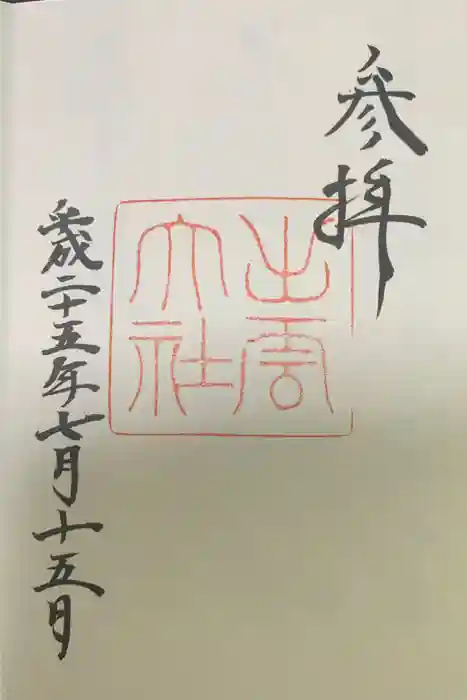 参拝
出雲
大社
平成二十五年七月十五日